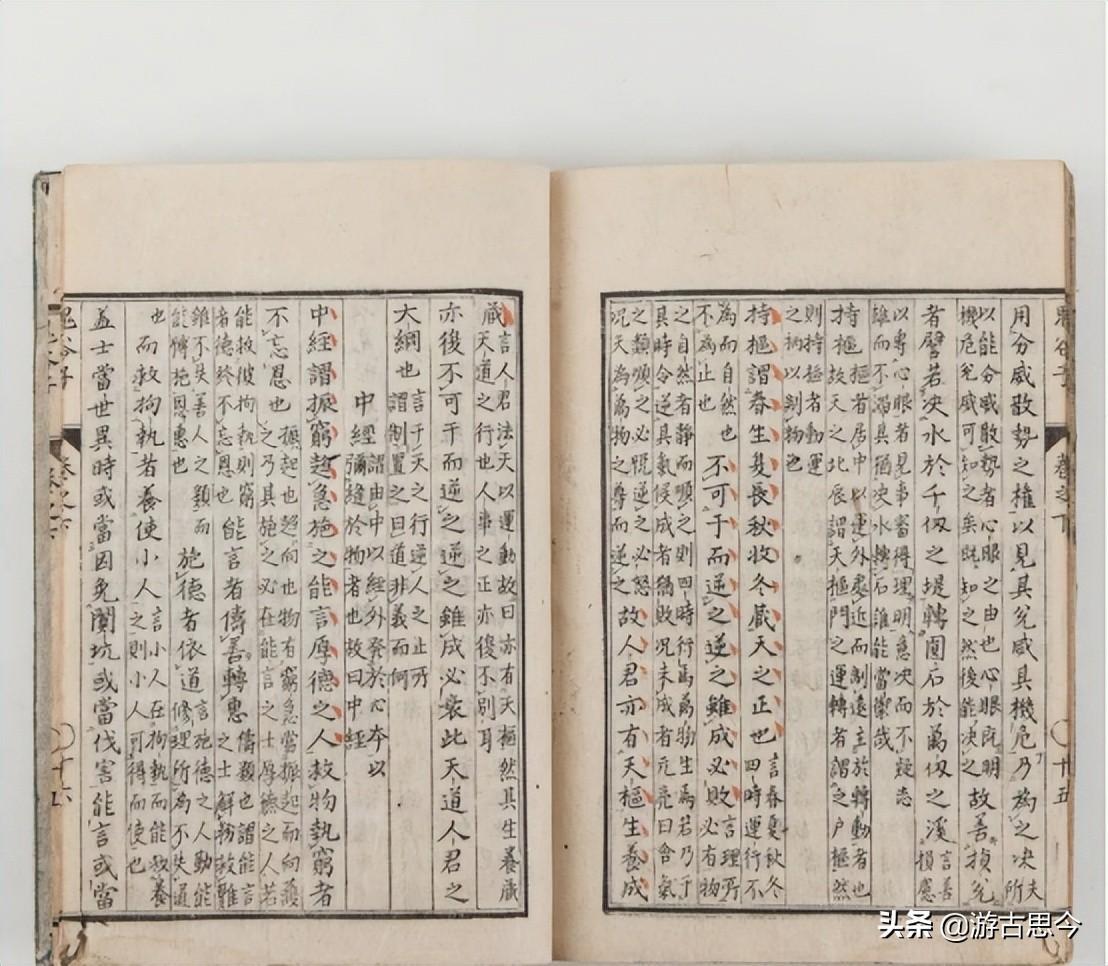 鬼谷子 卷之下 十五
用分威散勢之權以見其兊威其機危乃為之决夫所
以能分威散勢者心眼之由也心眼既明
機危兊威可知之矣既知之然後能决之故善損兊
者譬若决水於千仭之堤轉圓石於萬仭之溪言善損慮
以專心眼者見事審得理明意决而不疑志
雄而不滯其猶决水轉石誰能當禦哉
持樞樞者居中以運外處近而制遠主於轉動者也
故天之北辰謂天樞門之運轉者謂之户樞然
則持樞者動運
之柄以制物也
持樞謂春生夏長秋收冬藏天之正也言春夏秋冬四時運行不
為而自然也
不為止也不可干而逆之逆之雖成必敗言理所必有物
之自然者靜而順之則四時行焉萬物生焉若乃干
其時令逆其氣候成者猶敗况未成者元亮曰含氣
之類順之必悅逆之必怒
况天為萬物之尊而逆之故人君亦有天樞生養成
藏言人君法天以運動故曰亦有天樞然其生養藏
天道之行也人事之正亦復不别耳
亦復不可干而逆之逆之雖成必衰此天道人君之
大綱也言干天之行逆人之正所
謂制置之曰道非義而何
中經謂由中以經外發於心本以
彌縫於物者也故曰中經
中經謂振窮趍急施之能言厚德之人救物執窮者
不忘恩也振起也趍向也物有窮急當振起而向護
之乃其施之必在能言之士厚德之人若
能救彼拘執則窮
者德終不忘恩也能言者儔善轉惠儔類也謂能言
之士解物救難
雖不失善人之類而
能慱施恩惠也施德者依道言施德之人動能
修理所為不失道
也而救拘執者養使小人言小人在拘執而能救養
之則小人可得而使也
盖士當世異時或當因免闐坑或當伐害能言或當
鬼谷子 卷之下 十六
头条 @游古思今